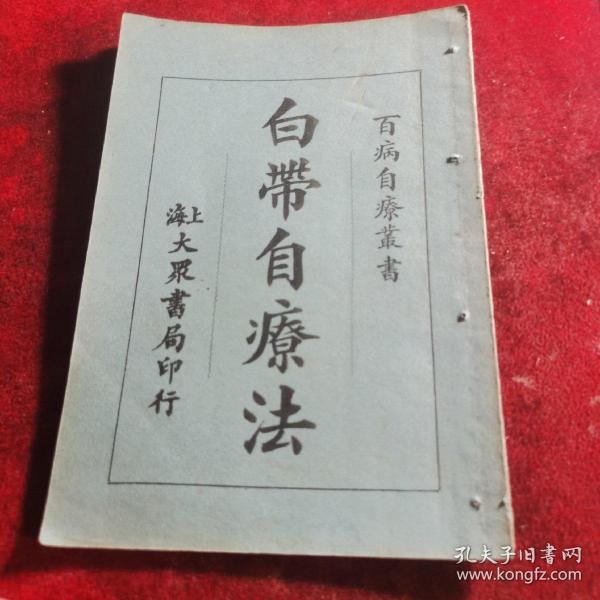 百病自療叢書
白帶自療法
上海大眾書局印行
孔夫子旧書网
www.kongfz.com